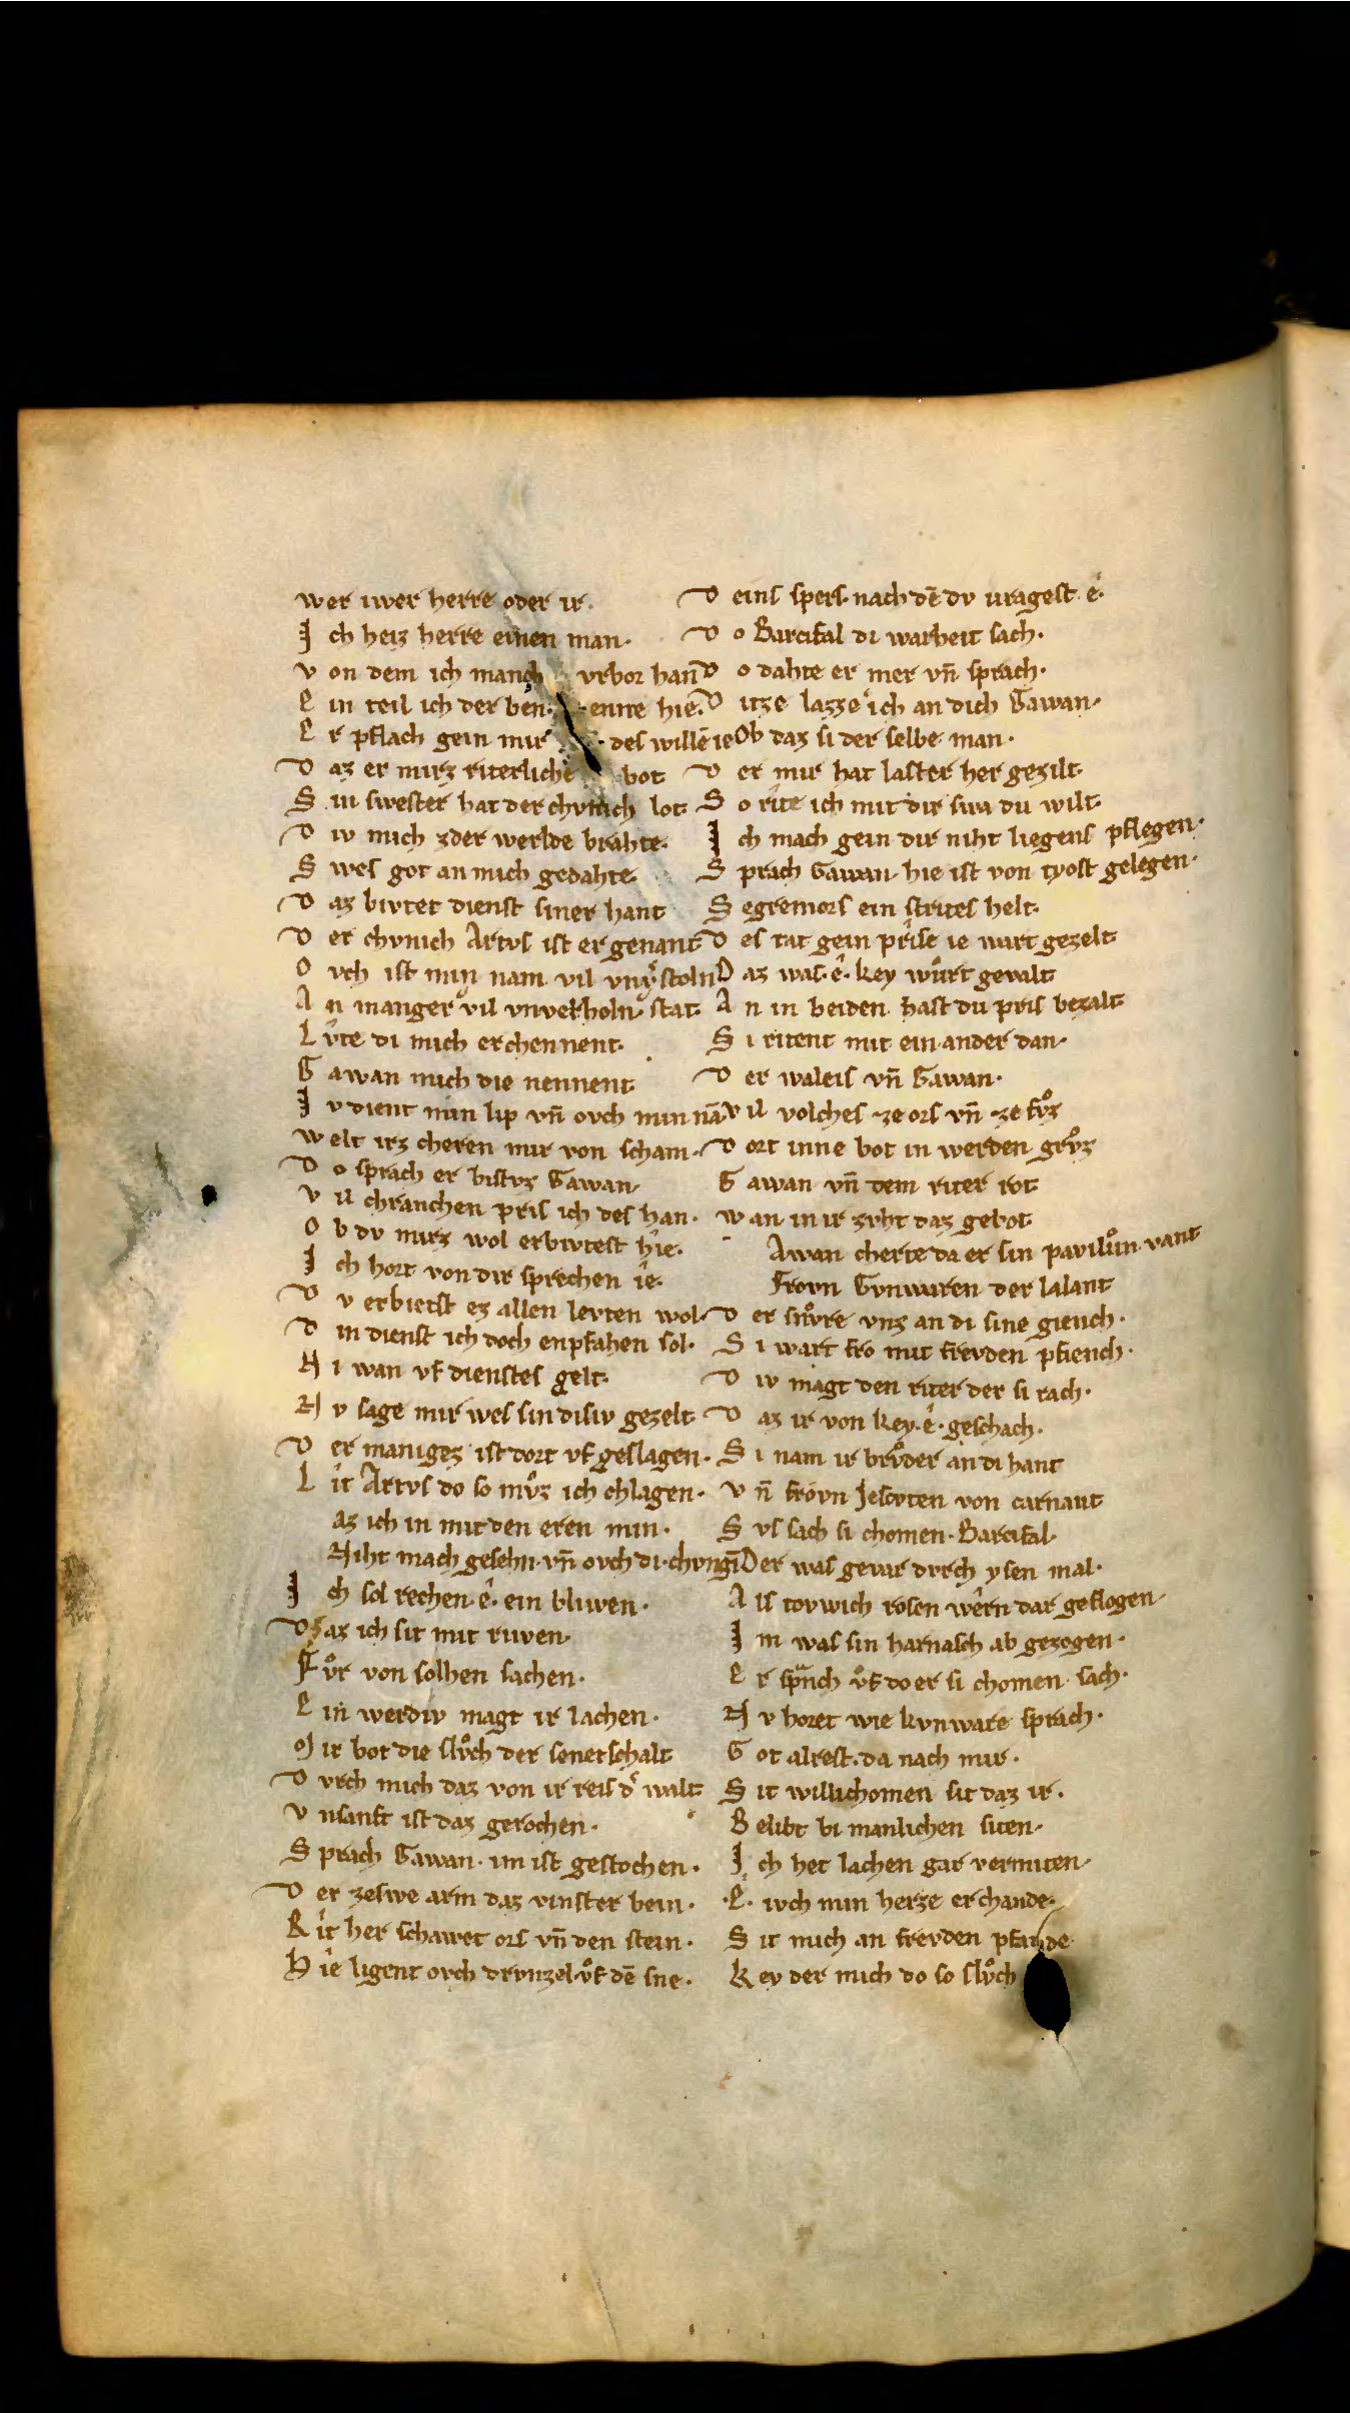 wer iwer herre oder ir.
I ch heiz herre einen man·
v on dem ich manch vrbor han
E in teil ich der ben· enne hie·
E r pflach gein mir · des willē ie
D az er mirz riterliche bot
S in swester hat der chvnich lot·
D iv mich zder werlde brahte·
S wes got an mich gedahte
D az bivtet dienst siner hant
D er chvnich Artvs ist er genant
O vch ist min nam vil vnv̾stoln
A n manger vil vnverholn· stat·
L v̂te di mich erchennent·
G awan mich die nennent
I v dient min lip vn̄ ovch min nā
w elt irz cheren mir von scham·
D o sprach er bistvz Gawan
V il chranchen pris ich des han·
O b dv mirz wol erbivtest hîe·
I ch hort von dir sprechen îe·
D v erbivtst ez allen levten wol·
D in dienst ich doch enpfahen sol·
N i wan vf dienstes gelt·
N v sage mir wes sin disiv gezelt·
D er maniges ist dort vf geslagen·
L ît Artvs do so mvͦz ich chlagen·
az ich in mit den eren min·
Niht mach gesehn· vn̄ ovch di·chvngī
I ch sol rechen·ê· ein bliwen·
D az ich sit mit riwen·
Fvͦr von solhen sachen·
E in werdiv magt ir lachen·
M ir bot die slvͦch der senetschalt
D vrch mich daz von ir reis d̾ walt
V nsanft ist daz gerochen·
S prach Gawan· im ist gestochen·
D er zeswe arm daz vinster bein·
R ît her schawet ors vn̄ den stein·
H îe ligent ovch drvnzel·vͦf dē sne·
D eins spers·nach dē dv vragest·ê·
D o Barcifal di warheit sach·
D o dahte er mer vn̄ sprach·
D itze lazze ich an dich Gawan·
Ob daz si der selbe man·
D er mir hat laster her gezilt·
S o rîte ich mit dir swa du wilt·
I ch mach gein dir niht liegens pflegen·
S prach Gawan· hie ist von tyost gelegen·
S egremors ein strites helt·
D es tat gein prîse ie wart gezelt
D az was·ê·key wûrt gevalt
A n in beiden hast du pris bezalt
S i ritent mit ein·ander dan·
D er waleis vn̄ Gawan·
v il volches ze ors vn̄ ze fvͦz
D ort inne bot in werden grvͦz
G awan vn̄ dem riter rot
w an in ir zvht daz gebot
Awan cherte da er sin pavilvͦn vant
Frovn Gvnwaren der lalant
D er snvͦre vnz an di sine giench·
S i wart fro mit frevden pfiench·
D iv magt den riter der si rach·
D az ir von key·ê·geschach·
S i nam ir brvͦder an di hant
V n̄ frovn Jescvten von carnant
S vs sach si chomen· Barcifal·
Der was gevar dvrch ysen mal·
A ls tovwich rosen wêrn dar geflogen
I m was sin harnasch ab gezogen·
E r spͣnch vͦf do er si chomen sach·
N v horet wie kvnware sprach·
G ot alrest·da nach mir·
S it willichomen sit daz ir·
B elibt bi manlichen siten·
I ch het lachen gar vermiten·
·E· ivch min herze erchande
S it mich an frevden pfande
K ey der mich do so slvͦch